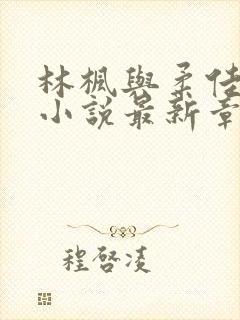 林楓與柔佳
小說最新章
程啓凌